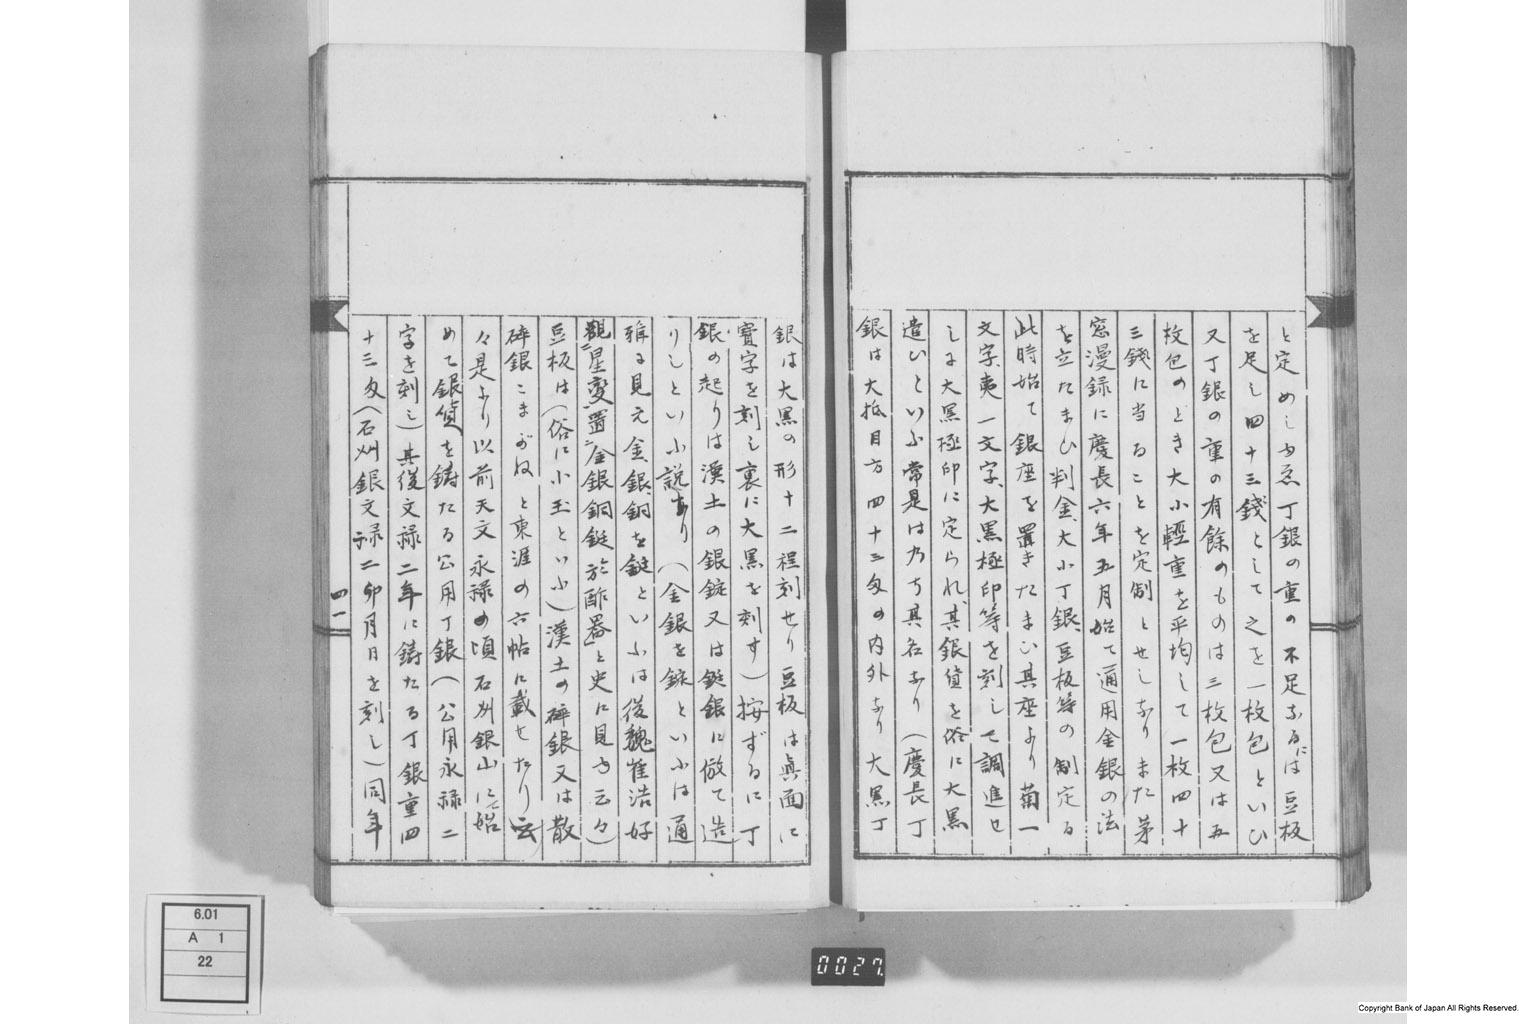 と定めしゆゑ丁銀の重の不足なるには豆板
を足し四十三錢として之を一枚包といひ
又丁銀の重の有餘のものは三枚包又は五
枚包のとき大小輕重を平均して一枚四十
三錢に当ることを定制とせしなりまた茅
窓漫録に慶長六年五月始て通用金銀の法
を立たまひ判金、大小丁銀、豆板等の制定る
此時始て銀座を置きたまひ其座より菊一
文字、夷一文字、大黒極印等を刻して調進せ
しに大黒極印に定られ、其銀貨を俗に大黒
遣ひといふ常是は乃ち其名なり(慶長丁
銀は大抵目方四十三匁の内外なり大黒丁
銀は大黒の形十二程刻せり豆板は眞面に
寶字を刻し裏に大黒を刻す)按ずるに丁
銀の起りは漢土の銀錠又は鋌銀に倣て造
りしといふ説あり(金銀を錠といふは通
雅に見え金、銀、銅を鋌といふは後魏崔浩好
觀二星變一置二金銀銅鋌於酢器一と史に見ゆ云々)
豆板は(俗に小玉といふ)漢土の碎銀又は散
碎銀こまがねと東涯の六帖に載せたり云
々是より以前天文永禄の頃石州銀山にて始
めて銀貨を鋳たる公用丁銀(公用永禄二
字を刻し)其後文禄二年に鋳たる丁銀重四
十三匁(石州銀文禄二卯月日を刻し)同年
四一
6.01
A 1
22
0027.
Copyright Bank of Japan All Rights Reserved.